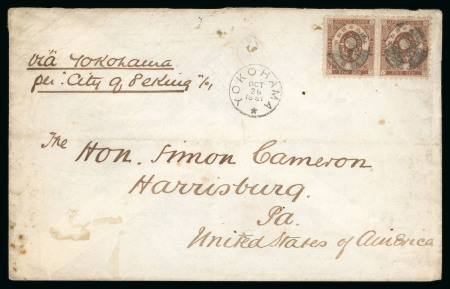 via Yokohama
per. City of Peking
YOKOHAMA
OCT
26
1881
The Hon. Simon Cameron
Harrisburg.
Pa.
United States of America